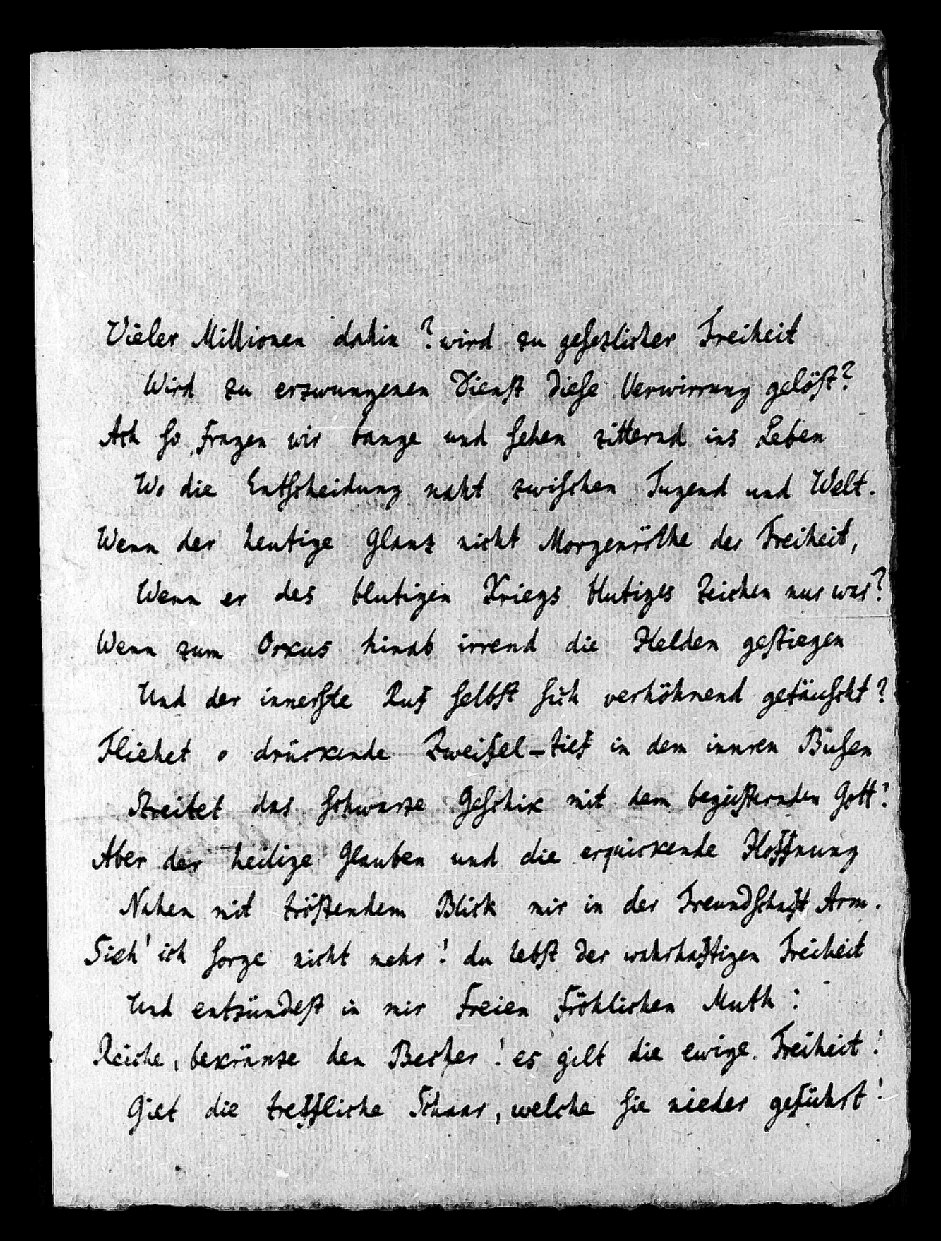 Vieler Millionen dahin? wird zu gesezlicher Freiheit
Wird zu erzwungenen Dienst diese Verwirrung gelöst?
Ach so fragen wir bange und sehen zitternd ins Leben
Wo die Entscheidung naht zwischen Tugend und Welt.
Wenn der heutige Glanz nicht Morgenröthe der Freiheit,
Wenn er des blutigen Kriegs blutiges Zeichen nur war?
Wenn zum Orkus hinab irrend die Helden gestiegen
Und der innerste Ruf selbst sich verhöhnend getäuscht?
Fliehet o drückende Zweifel – tief in dem innren Busen
Streitet das schwarze Geschik mit dem begeisternden Gott!
Aber der heilige Glauben und die erquickende Hoffnung
Nahen mit tröstendem Blick mir in der Freundschaft Arm.
Sieh' ich sorge nicht mehr! du lebst der wahrhaftigen Freiheit
Und entzündest in mir freien fröhlichen Muth:
Reiche, bekränze den Becher! es gilt die ewige Freiheit!
Gilt die treffliche Schaar, welche sie nieder geführt!